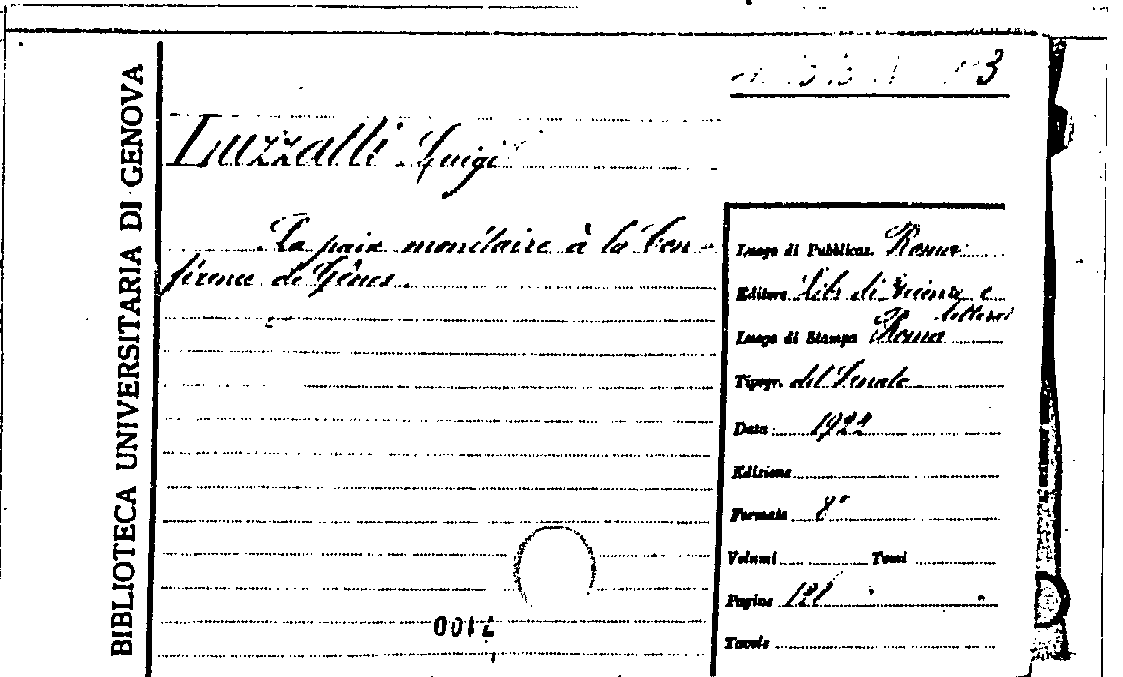 BIBLIOTECA UNIVERSITARIA DI GENOVA
3
Luzzatti Luigi
La paix monétaire à la Con-
férence de Gênes.
Luogo di Pubblicaz. Roma
Editore Lib. di Scienze e
lettere
Luogo di Stampa Roma
Tipogr. del Senato
Data 1922
Edizione
Formato 8°
Volumi Tomi
Pagine
Tavole